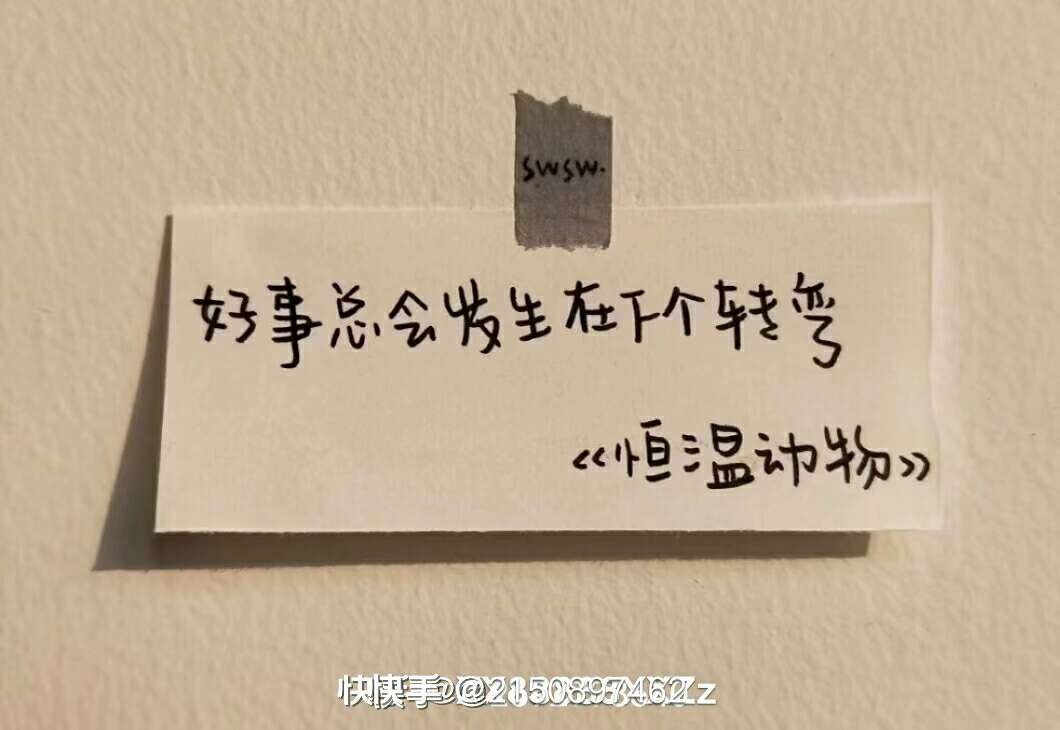 swsw.
好事总会发生在下个转弯
《恒温动物》
快手